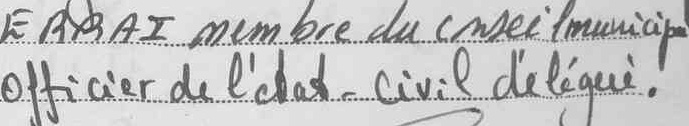 ERRAI membre du conseil municipal
officier de l'état-civil délégué.